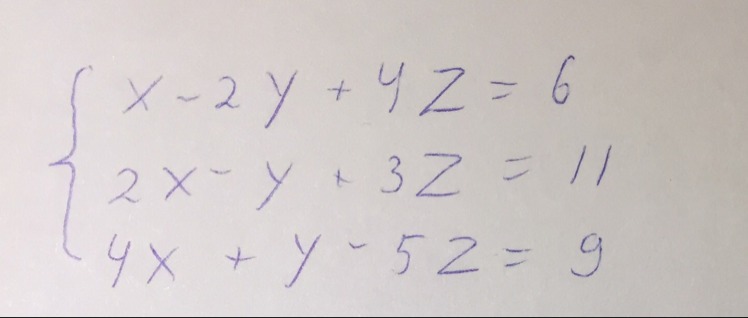 x - 2y + 4z = 6
2x - y + 3z = 11
4x + y - 5z = 9